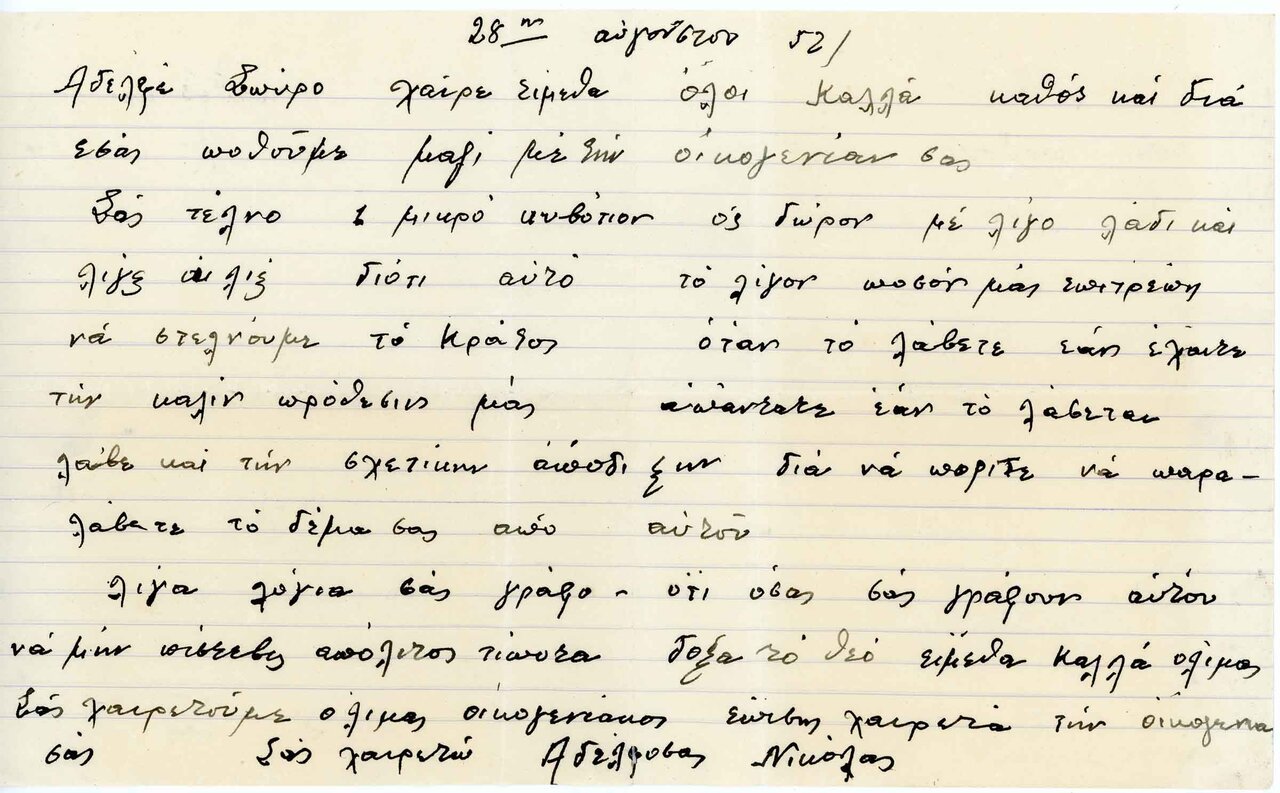 28ης αὐγούστου 52/
Αδελφέ Σπύρο χαίρε εἰμεθα ὅλοι Καλλά καθός καὶ διά
εσάς ποθούμε μαζί μέ τήν οἰκογενίαν σας
Σάς τέλνο 1 μικρό κιβότιον ός δώρον μέ λίγο λάδι καί
λίγες ελιές διότι αὐτό τό λίγον ποσόν μάς επιτρέπη
νά στελνόυμε τό Κράτος όταν τό λάβετε εάν έχαιτε
τήν καλίν πρόθεσιν μάς απάντατε ἐάν τό λάβεται
λάβε καί τήν σχετικην απόδιξην διά νά πορίτε νά παρα-
λάβετε τό δέμα σας από αὐτού
λίγα λόγια σάς γράφο - ότι όσας σάς γράφουν αὐτόυ
νά μήν πιστεβις απόλιτος τίποτα δοξα τό θεό είμεθα Καλλά όλιμας
Σάς χαιρετούμε όλιμας οἰκογενίακος επίσης χαιρετά τήν οἰκογενια
σάς Σάς χαιρετώ Αδέλφοσας Νικόλας